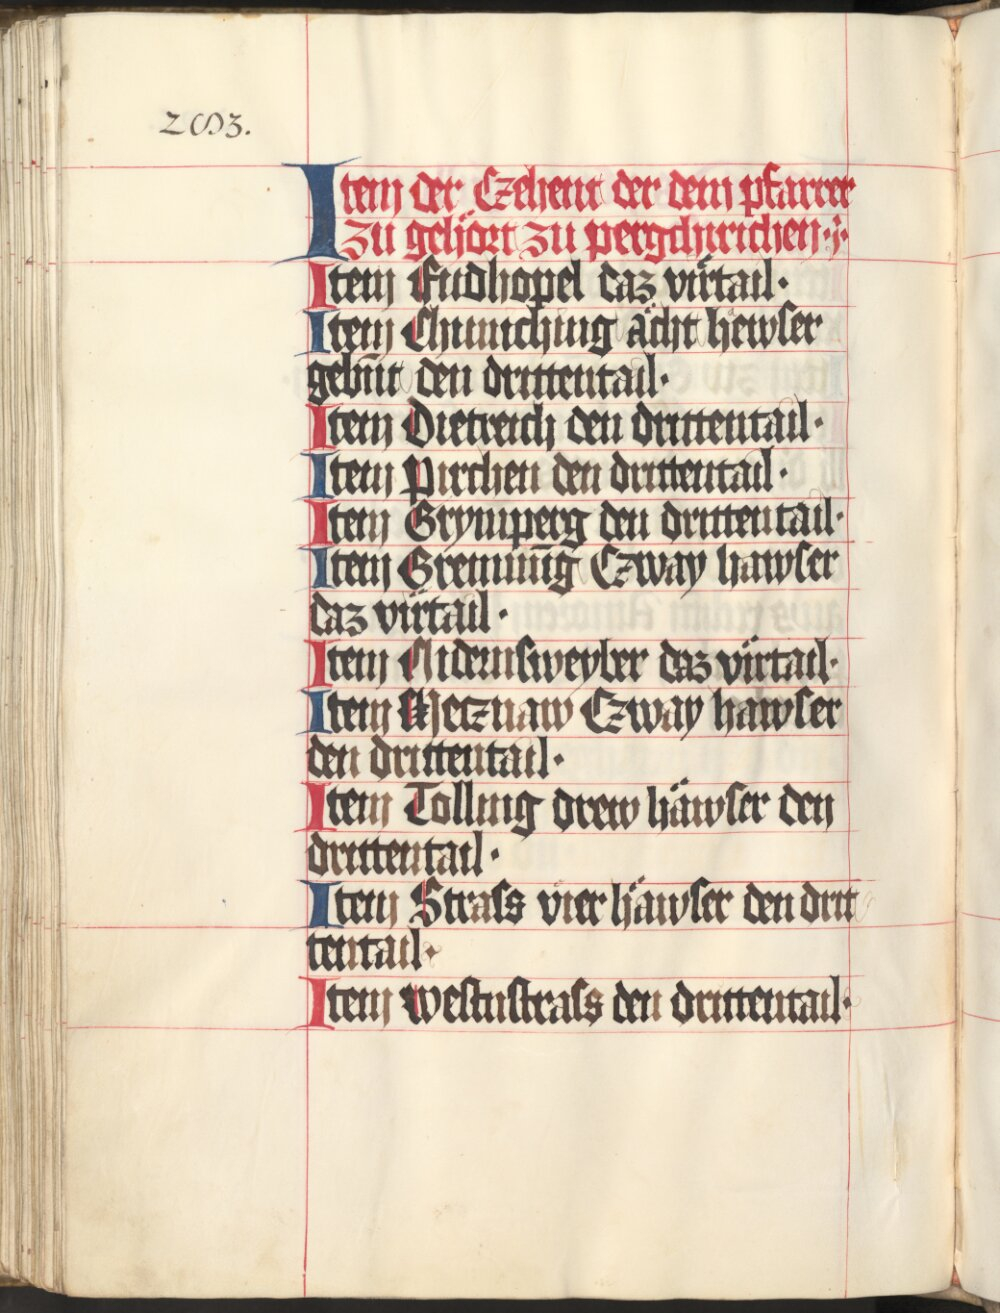 Item der Czehent der dem pfarrer
zu gehort zu pergchirichen
Item Fudhopel daz virtail.
Item Chuniching ächt hewser
den drittentail.
Item Dietreich den drittentail.
Item Pirchen den drittentail.
Item Grymperg den drittentail.
Item Czway hawser
daz virtail.
Item daz virtail.
Item Metznaw Czway hawser
den drittentail.
Item Tolling drew häwser den
drittentail.
Item Strass vier häwser den drit
tentail.
Item Westnstrass den drittentail.